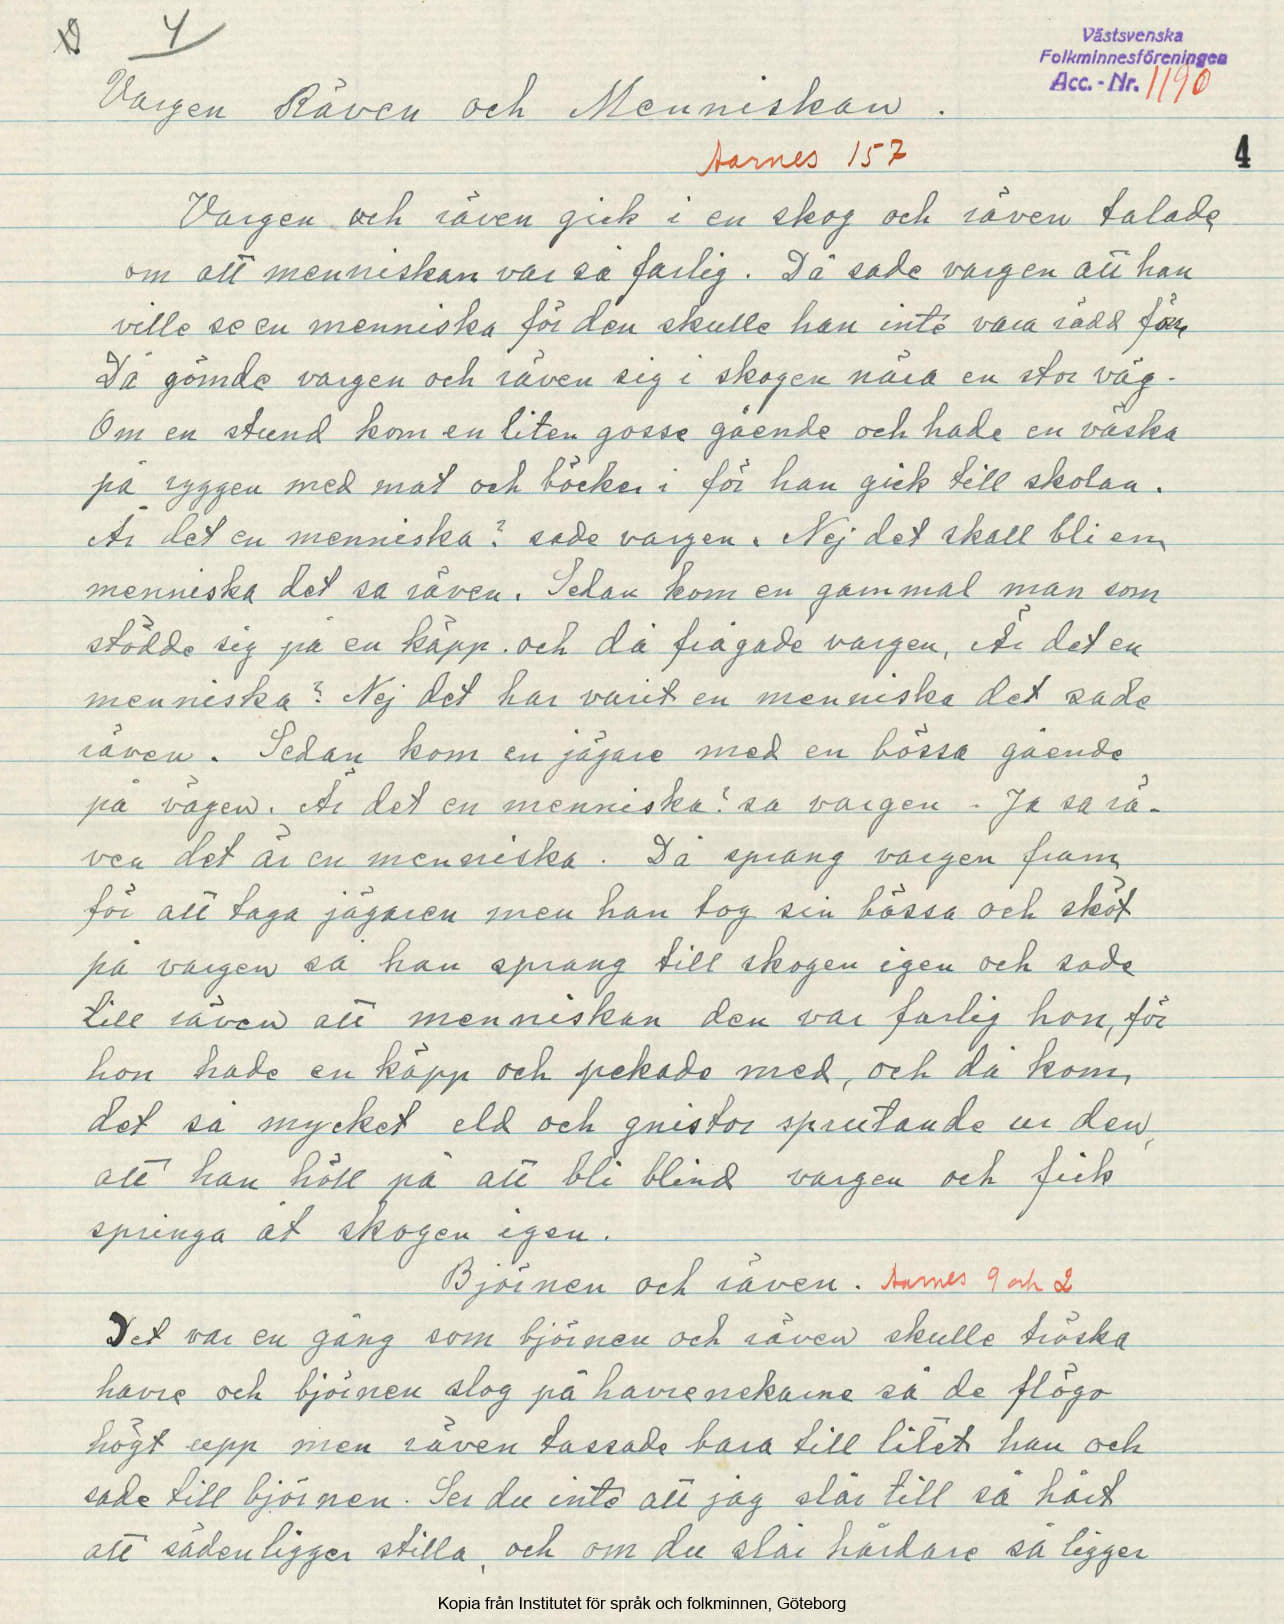 4
Västsvenska
Folkminnesföreningen
Acc.-Nr. 1190
Vargen Räven och Menniskan.
Aarnes 157
4
Vargen och räven gick i en skog och räven talade
om att menniskan var så farlig. Då sade vargen att han
ville se en menniska för den skulle han inte vara rädd för
Då gömde vargen och räven sig i skogen nära en stor väg.
Om en stund kom en liten gosse gående och hade en väska
på ryggen med mat och böcker i för han gick till skolan.
Är det en menniska? sade vargen. Nej det skall bli en
menniska det sa räven. Sedan kom en gammal man som
stödde sig på en käpp. och då frågade vargen, Är det en
menniska? Nej det har varit en menniska det sade
räven. Sedan kom en jägare med en bössa gående
på vägen. Är det en menniska? sa vargen - Ja sa rä-
ven det är en menniska. Då sprang vargen fram
för att taga jägaren men han tog sin bössa och sköt
på vargen så han sprang till skogen igen och sade
till räven att menniskan den var farlig hon, för
hon hade en käpp och pekade med, och då kom
det så mycket eld och gnistor sprutande ur den,
att han höll på att bli blind vargen och fick
springa åt skogen igen.
Björnen och räven. Aarnes 9 och 2
Det var en gång som björnen och räven skulle tröska
havre och björnen slog på havrenekarne så de flögo
högt upp men räven tassade bara till litet han och
sade till björnen. Ser du inte att jag slår till så hårt
att säden ligger stilla, och om du slår hårdare så ligger
Kopia från Institutet för språk och folkminnen, Göteborg